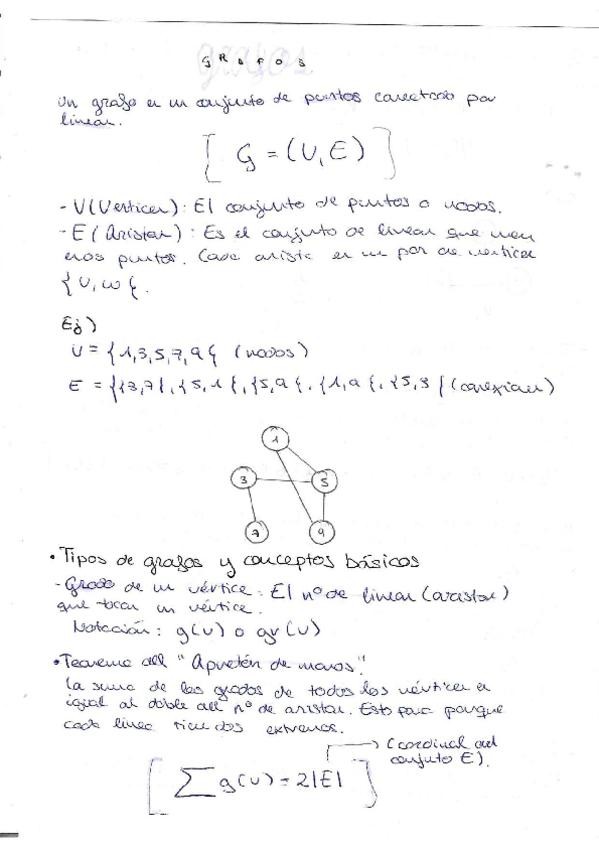 GRAFOS
Un grafo es un conjunto de puntos conectados por
lineas.
[ G = (V, E) ]
- V (Vertices): El conjunto de puntos o nodos.
- E (Aristas): Es el conjunto de lineas que unen
esos puntos. Cada arista es un par de vertices
{v, w}.
Ej)
V = {1,3,5,7,9} (nodos)
E = {{3,7}, {5,1}, {5,9}, {1,9}, {5,3} (conexiones)
1
3 5
7 9
• Tipos de grafos y conceptos básicos
- Grado de un vértice: El nº de lineas (aristas)
que tocan un vértice.
Notación: g(v) o gr(v)
• Teorema del "Apretón de manos".
La suma de los grados de todos los vértices es
igual al doble del nº de aristas. Esto pasa porque
cada linea tiene dos extremos.
(cardinal del
conjunto E).
[ ∑ g(v) = 2|E| ]